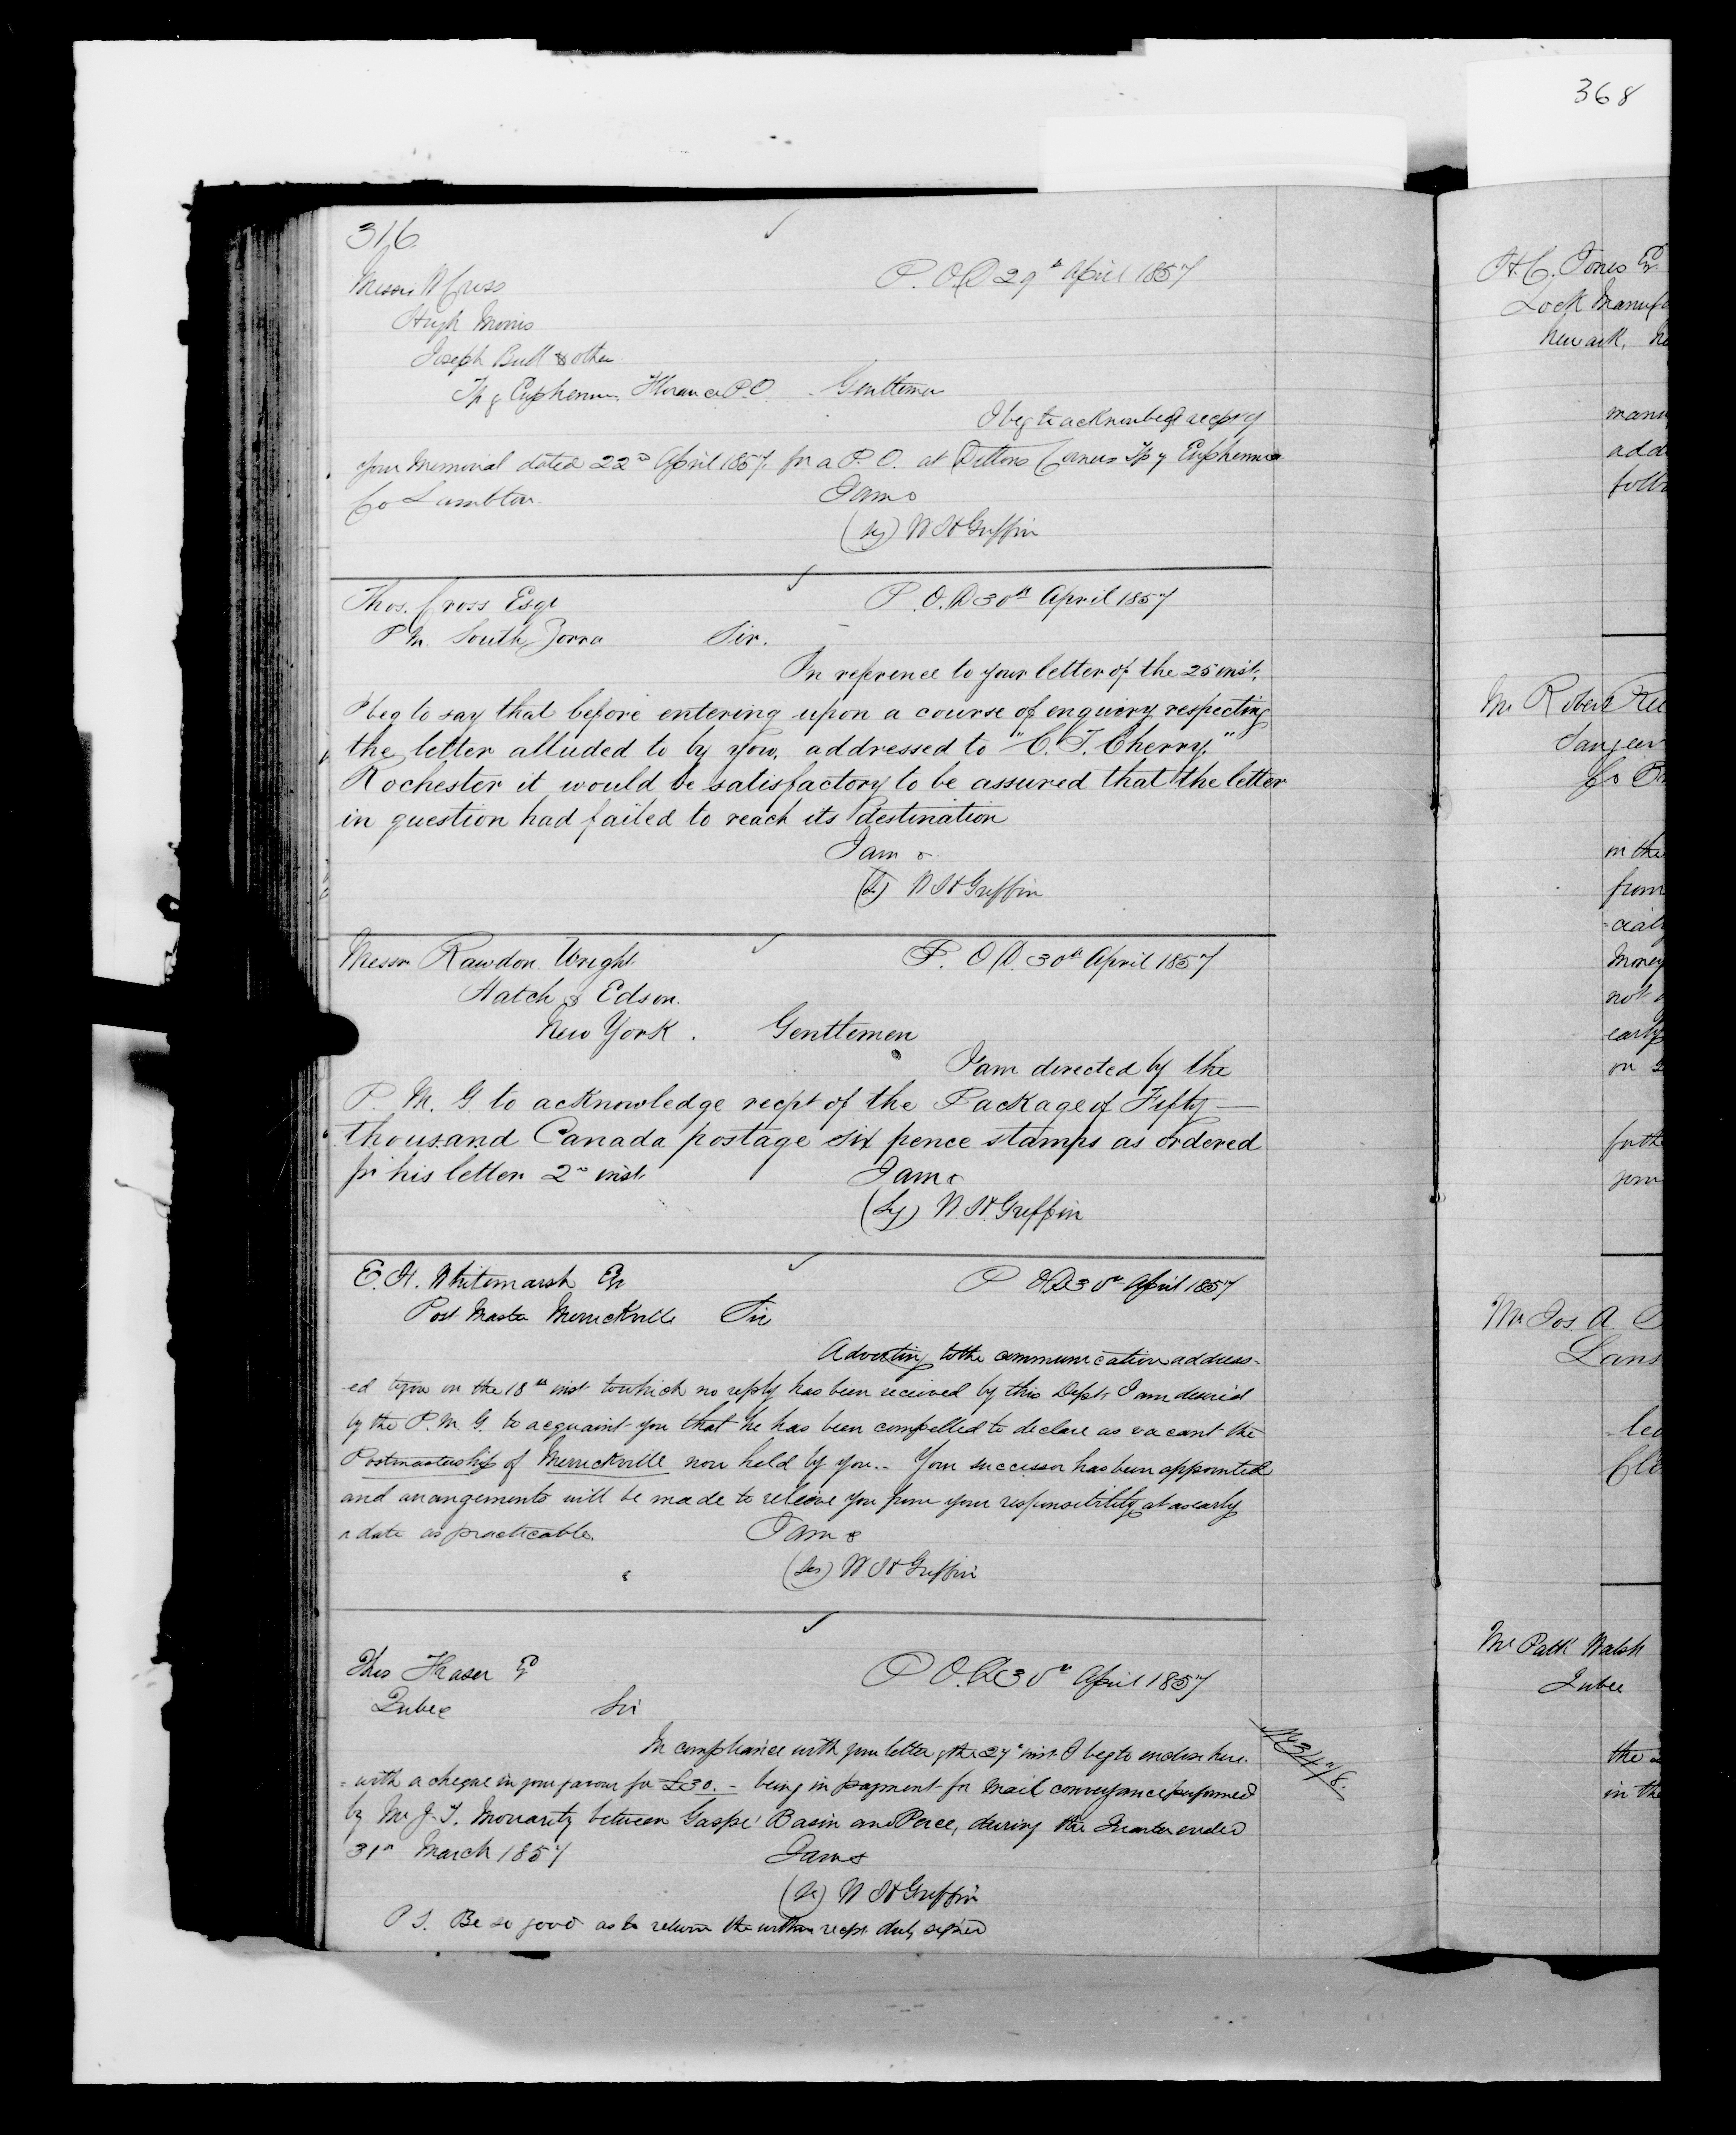 368
316
Messrs W Cress
P. O. D 29th April 1857
Hugh Morris
Joseph Bull & other
Tp of Euphemia, Florence P.O. Gentlemen
I beg to acknowledge recpt of
your Memorial dated 22nd April 1857, for a P. O. at Dittons Corners Tp of Euphemia
Co Lambton.
I am &
(Sg) W H Griffin
Thos. Cross Esqr
P. O. D 30th April 1857
P M. South Zorra Sir.
In reference to your letter of the 25 inst.
I beg to say that before entering upon a course of enquiry respecting
the letter alluded to by you, addressed to "C. T. Cherry,"
Rochester it would be satisfactory to be assured that the letter
in question had failed to reach its destination
I am &
(S) W H Griffin
Messrs Rawdon Wright
P. O D. 30th April 1857
Hatch & Edson.
New York. Gentlemen
I am directed by the
P. M. G. to acknowledge recpt of the Package of Fifty —
thousand Canada postage six pence stamps as ordered
pr his letter 2nd inst.
I am &
(Sg) W. H. Griffin
E. H. Whitmarsh Eqr
P O D 30th April 1857
Post Master Merrickville Sir
Adverting to the communication address-
ed to you on the 18th inst to which no reply has been received by this Dept. I am desired
by the P. M. G. to acquaint you that he has been compelled to declare as vacant the
Postmastership of Merrickville now held by you.. Your successor has been appointed
and arrangements will be made to relieve you from your responsibility at as early
a date as practicable.
I am &
(Sg) W H Griffin
Thos Fraser Eq
P O. D 30th April 1857
Quebec Sir
In compliance with your letter of the 27th inst. I beg to enclose here
=with a cheque in your favour for £30. – being in payment for mail conveyance performed
by Mr J. T. Moriarity between Gaspé Basin and Perce, during the Quarter ended
31st March 1857
I am &
(Sg) W H Griffin
P S. Be so good as to return the within recpt. duly signed
H. C. Jones Eqr
Lock Manuf
Newark, Ne
manu
add
follo
Mr Robert
Saugeen
Co Br
in the
from
=cial
Money
not
early
on
for the
your
Mr Jos. A.
Lans
Mr Patk Walsh
Quebec
the
in the